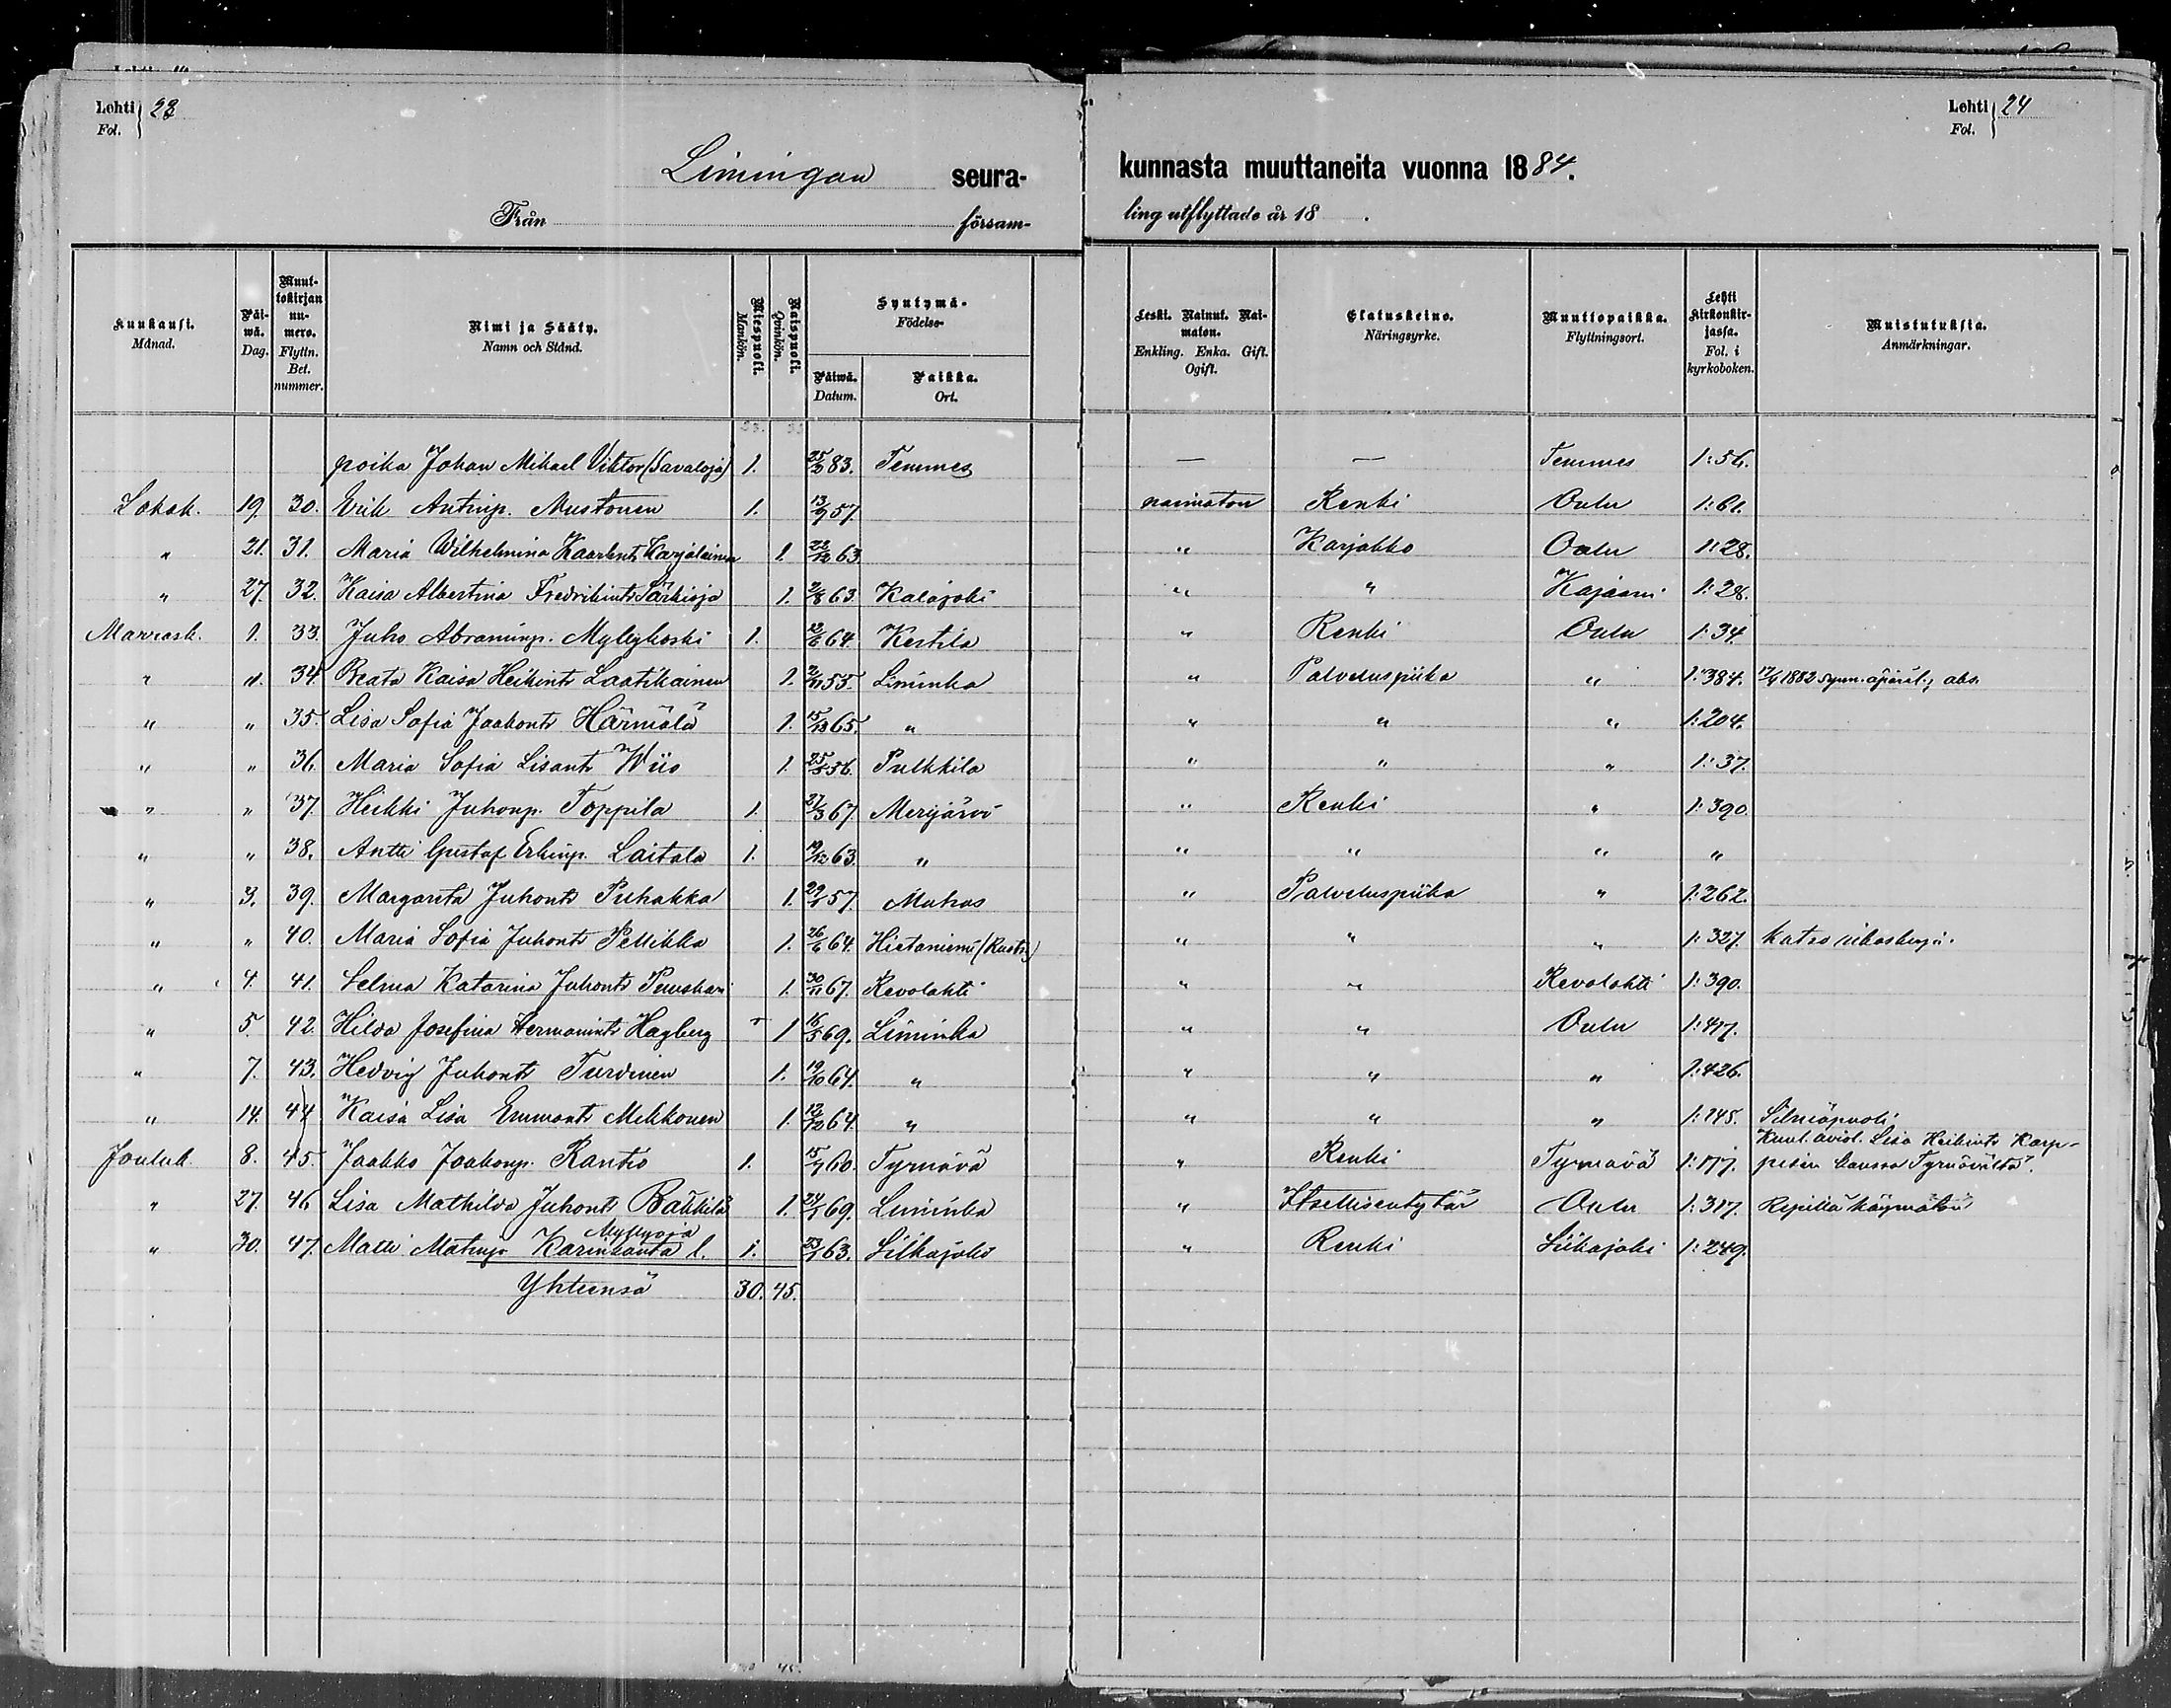 Lehti 23
Fol.
Lehti 24
Fol.
Limingan seura- kunnasta muuttaneita vuonna 1884.
Från försam- ling utflyttade år 18 .
Kuukausi. Månad.
Päiwä. Dag.
Muuttokirjan numero. Flyttn. Bet. nummer.
Nimi ja Sääty. Namn och Stånd.
Miespuolt. Mankön.
Naispuolt. Qvinkön.
Syntymä- Födelse-
Päiwä. Datum.
Paikka. Ort.
Leski. Nainut. Naimaton. Enkling. Enka. Gift. Ogift.
Elatuskeino. Näringsyrke.
Muuttopaikka. Flyttningsort.
Lehti kirkonkirjassa. Fol. i kyrkoboken.
Muistutuksia. Anmärkningar.
poika Johan Mikael Viktor (Savaloja) 1. 83. Temmes — — Temmes 1:56.
Lokak. 19. 30. Erik Antinp. Mustonen 1. 57. naimaton Renki Oulu 1:61.
" 21. 31. Maria Wilhelmina Kaarlent. Karjalainen 1. 22/12 63. " Karjakko Oulu 1:28.
" 27. 32. Kaisa Albertina Fredrikint. Särkioja 1. 2/8 63. Kalajoki " " Kajaani 1:28.
Marrask. 1. 33. Juho Abraminp. Mylykoski 1. 64. Kestilä " Renki Oulu 1:34.
" ". 34. Beata Kaisa Heikint. Laatikainen 1. 55. Liminka " Palveluspiika " 1:384. 1882 synn. äpärät.; abs.
" " 35. Lisa Sofia Jaakont. Härmälä 1. 65. " " " " 1:204.
" " 36. Maria Sofia Lisant. Wiio 1. 56. Pulkkila " " " 1:37.
" " 37. Heikki Juhonp. Toppila 1. 27/3 67. Merijärvi " Renki " 1:390.
" " 38. Antti Gustaf Erkinp. Laitala 1. 63. " " " " "
" 3. 39. Margareta Juhont. Puhakka 1. 57. Muhos " Palveluspiika " 1:262.
" " 40. Maria Sofia Juhont. Pellikka 1. 26/6 64. Hietaniemi " " " 1:327. katso
" 4. 41. Selma Katarina Juhont. 1. 30/11 67. Revolahti " " Revolahti 1:390.
" 5. 42. Hilda Josefina Hermanint. Hagberg 1 16/5 69. Liminka " " Oulu 1:417.
" 7. 43. Hedvig Juhont. Turdinen 1. 19/10 64. " " " " 1:426.
" 14. 44. Kaisa Lisa Emmont. Mikkonen 1. 12/12 64. " " " " 1:145. Silmäpuoli
Jouluk. 8. 45. Jaakko Jaakonp. Rantio 1. 60. Tyrnävä " Renki Tyrnävä 1:177. Kuul. aviol. Lisa Heikint. Karppisen kanssa Tyrnävältä.
" 27. 46. Lisa Mathilda Juhont. 1. 69. Liminka " Itsellisentytär Oulu 1:317. Ripillä käymätön
Myllyoja
" 30. 47. Matti Matinp. Karinkanta l. 1. 63. Siikajoki " Renki Siikajoki 1:249.
Yhteensä 30. 45.